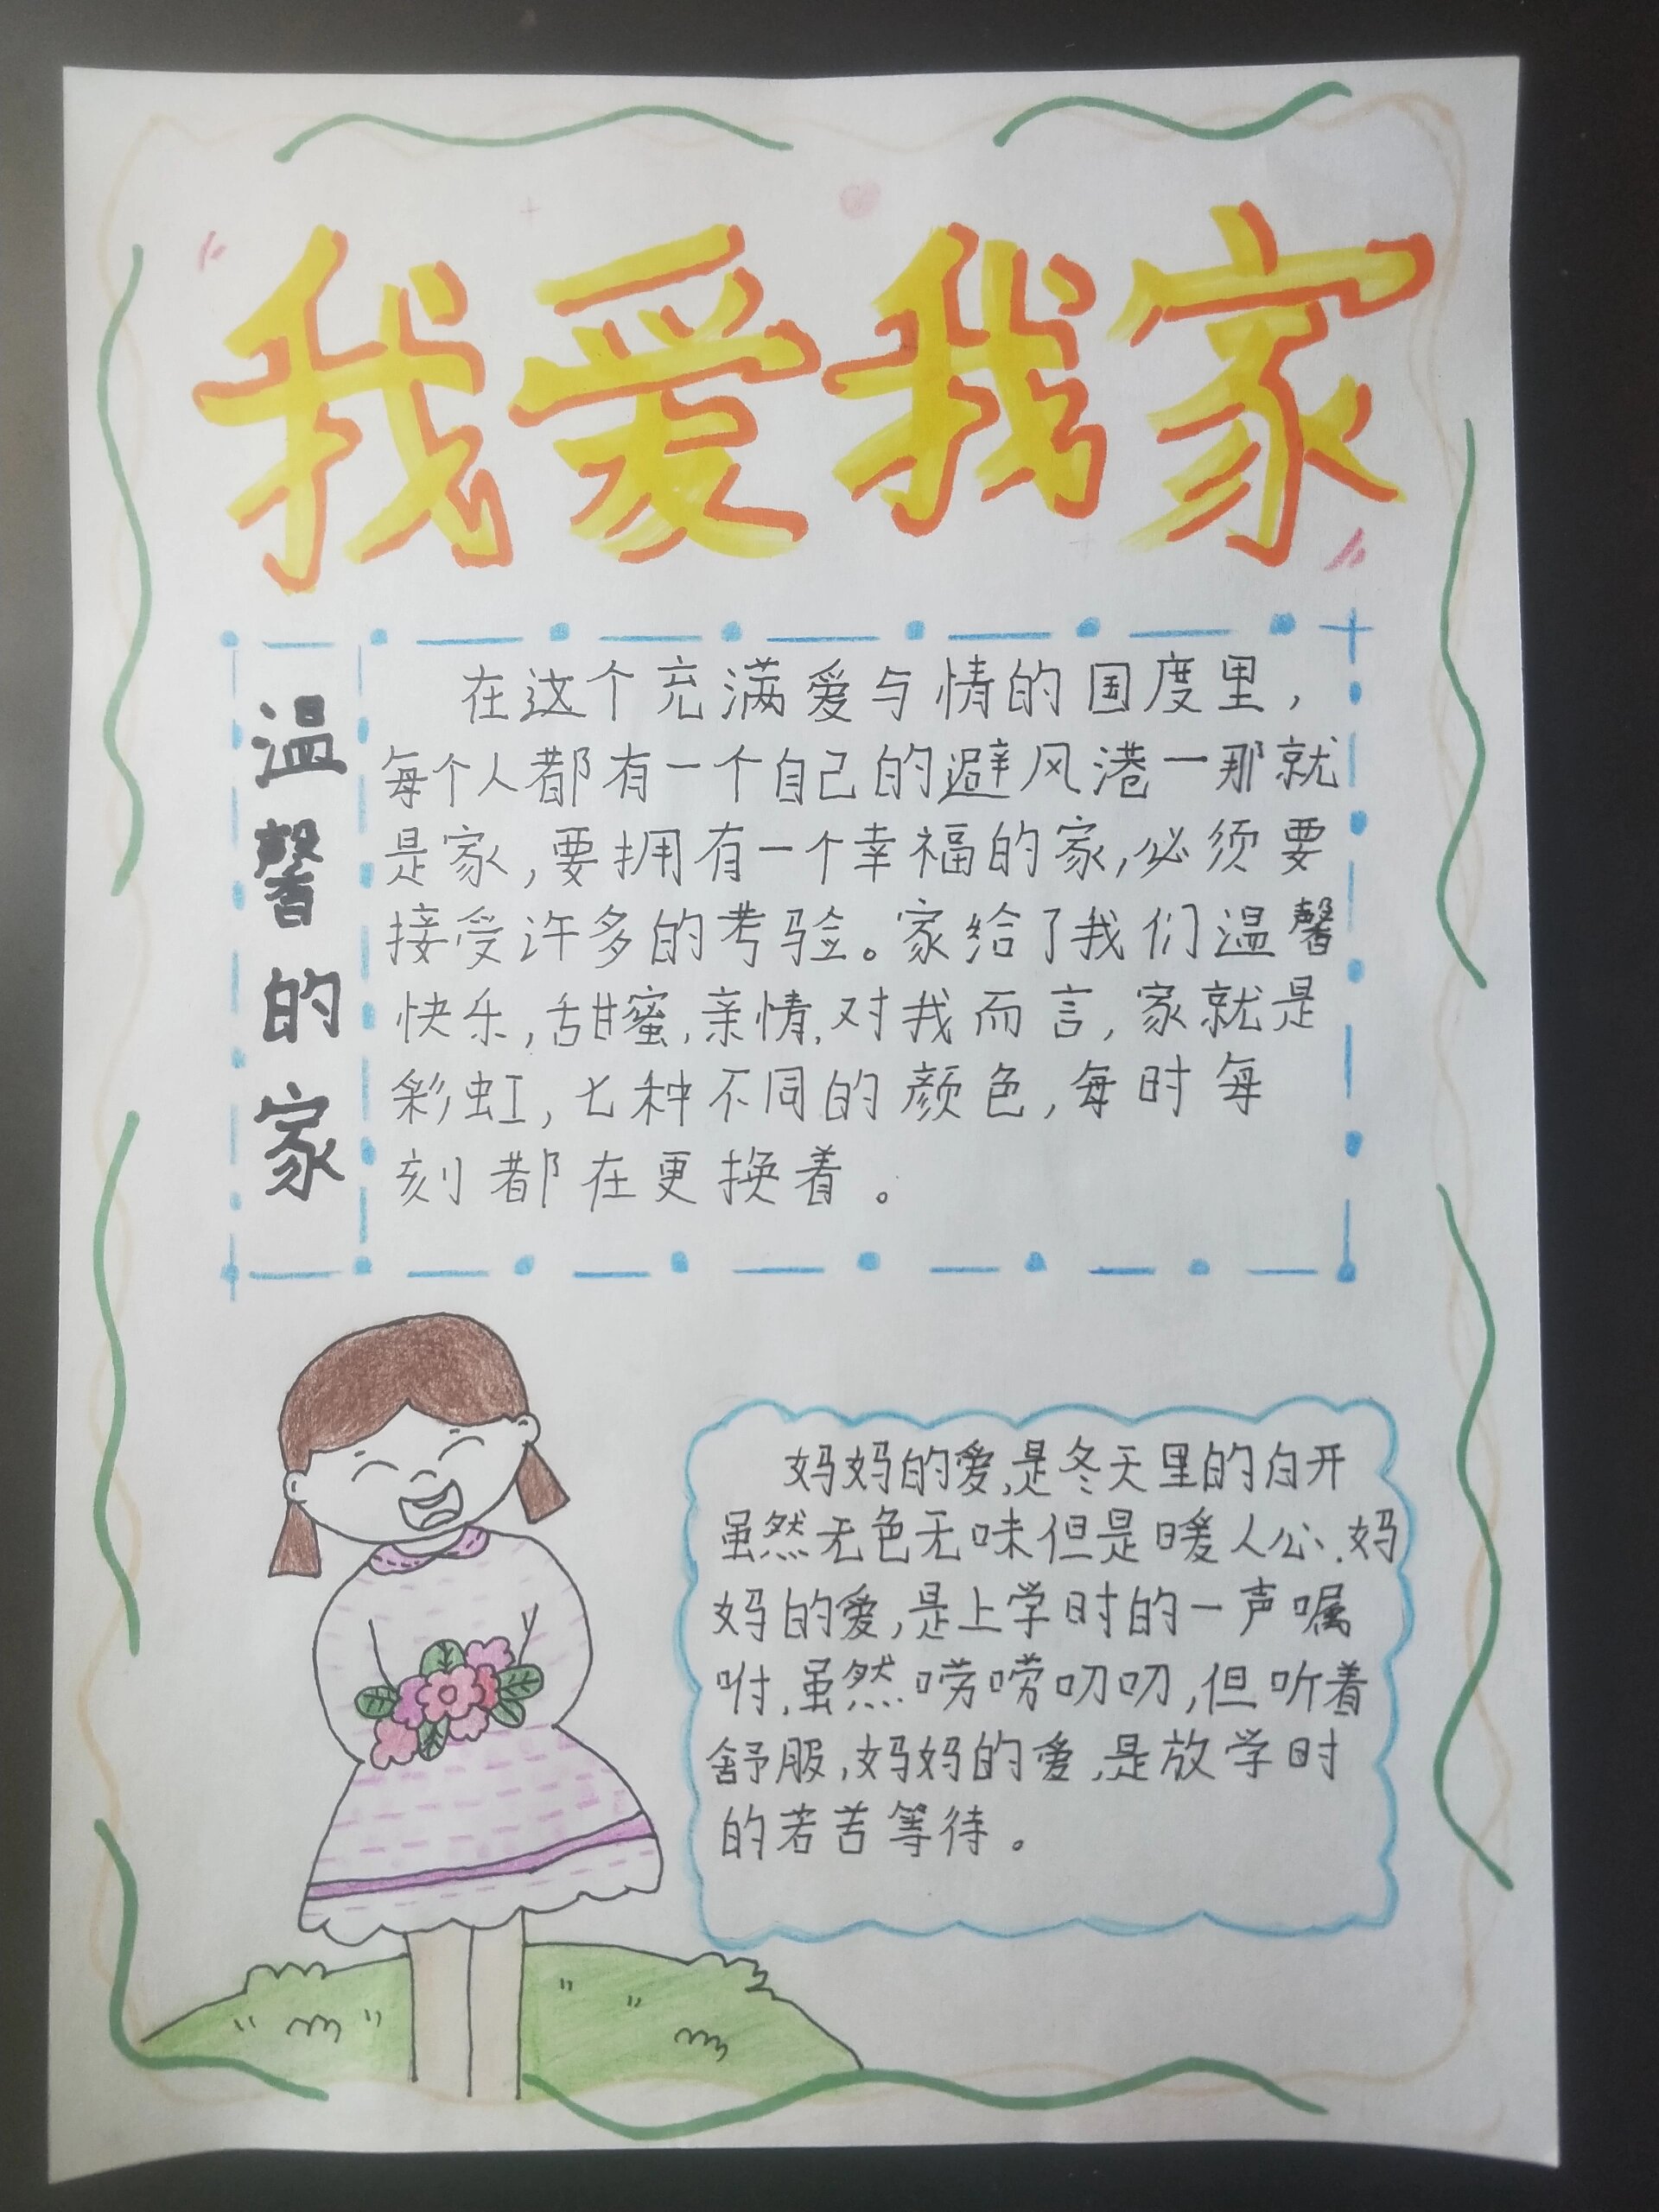 我爱我家
温馨的家
在这个充满爱与情的国度里，
每个人都有一个自己的避风港一那就
是家，要拥有一个幸福的家，必须要
接受许多的考验。家给了我们温馨
快乐，甜蜜，亲情，对我而言，家就是
彩虹，七种不同的颜色，每时每
刻都在更换着。
妈妈的爱，是冬天里的白开
虽然无色无味但是暖人心，妈
妈的爱，是上学时的一声嘱
咐，虽然唠唠叨叨，但听着
舒服，妈妈的爱，是放学时
的若苦等待。